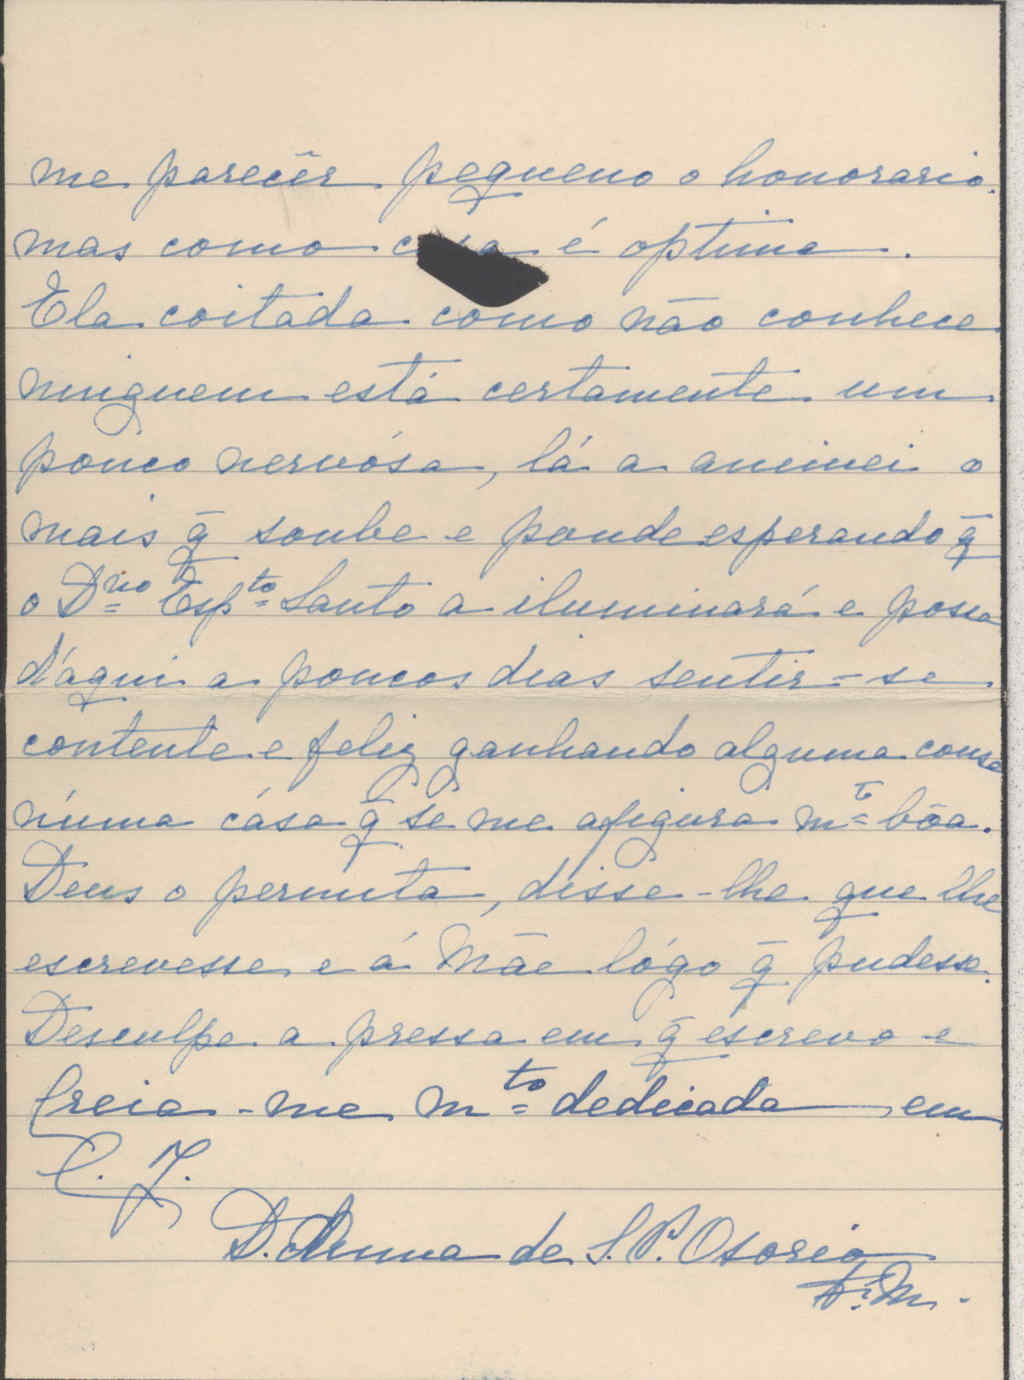 me parecêr pequeno o honorario.
mas como casa é optima.
Ela coitada como não conhece
ninguem está certamente um
pouco nervósa, lá a animei o
mais q̃ soube e poude esperando q̃
o Dno Espto Santo a iluminará e possa
d'aqui a poucos dias sentir-se
contente e feliz ganhando alguma cousa
n'uma cása q̃ se me afigura mto bôa.
Deus o permita, disse-lhe que lhe
escrevesse e á Mãe lógo q̃ pudesse.
Desculpe a pressa em q̃ escrevo e
Creia-me mto dedicada em
C. J.
D. Anna de S. P. Osorio